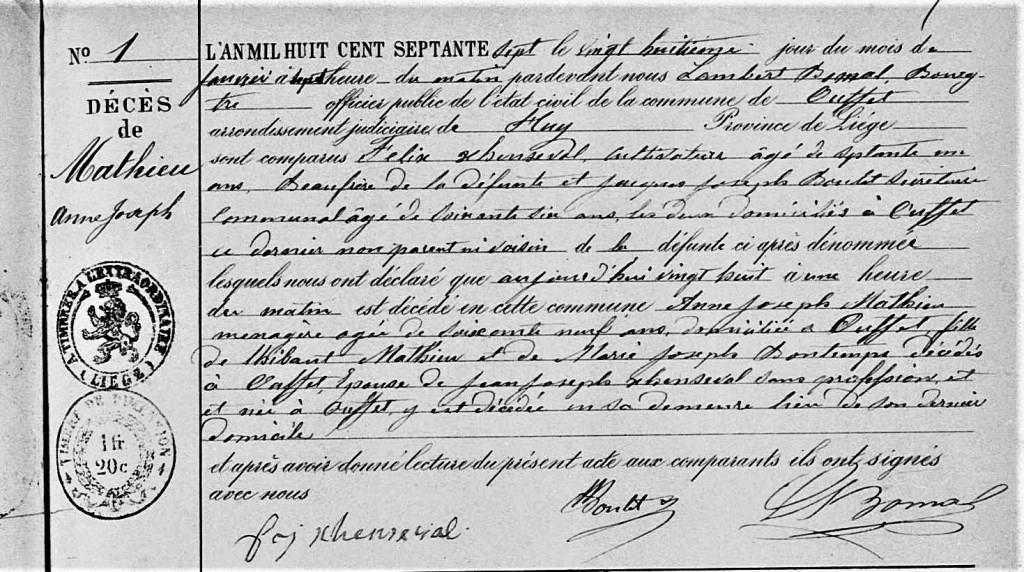 N° 1
DÉCÈS
de
Mathieu
Anne Joseph
A TIMBRER A L'EXTRAORDINAIRE
(LIÉGE)
1 fr
20c
L'AN MIL HUIT CENT SEPTANTE sept le vingt huitième jour du mois de
janvier à heure du matin pardevant nous Lambert Bomal, Bourg-
tre officier public de l'état civil de la commune de Ouffet
arrondissement judiciaire de Huy Province de Liége
sont comparus Felix xhenseval, cultivateur âgé de septante un
ans, Beaufrère de la défunte et jacques joseph Boulet Secretaire
Communal âgé de soixante six ans, les deux domiciliés à Ouffet
ce dernier non parent ni voisin de la défunte ci après dénommée
lesquels nous ont déclaré que aujourd'hui vingt huit à une heure
du matin est décédé en cette commune Anne joseph Mathieu
menagère agée de neuf ans, domiciliée a Ouffet, fille
de thibaut Mathieu et de Marie joseph Bontemps décédés
à Ouffet, Epouse de jean joseph xhenseval sans profession, et
et née à Ouffet, y est décédée en sa demeure lieu de son dernier
domicile
et après avoir donné lecture du présent acte aux comparants ils ont signés
avec nous
Boulet L Bomal
f a j xhenseval